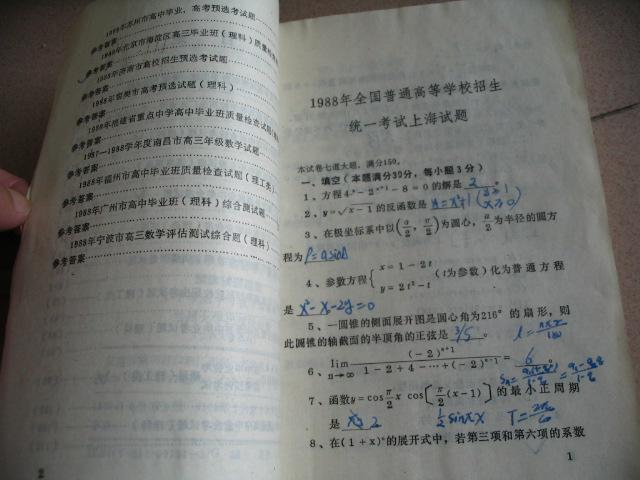 1988年苏州市高中毕业、高考预选考试题
参考答案
1988年北京市海淀区高三毕业班(理科)质量检
参考答案
1988年济南市高校招生预选考试题
参考答案
高考预选试题(理科)
参考答案
1988年福建省重点中学高中毕业班质量检查试题
参考答案
1987—1988学年度南昌市高三年级数学试题
参考答案
1988年福州市高中毕业班质量检查试题(理工类)
参考答案
1988年广州市高中毕业班(理科)综合测试题
参考答案
1988年宁波市高三数学评估测试综合题(理科)
参考答案
1988年全国普通高等学校招生
统一考试上海试题
本试卷七道大题,满分150。
一、填空(本题满分30分,每小题3分)
1、方程4ˣ-2ˣ⁺¹-8=0的解是 2 。
2、y=√x-1的反函数是 y=x²+1 (x≥0)
3、在极坐标系中以(a/2, π/2)为圆心,a/2为半径的圆方
程为 ρ=asinθ
4、参数方程{x=1-2t y=2t²-t (t为参数)化为普通方程
是 x²-x-2y=0
5、一圆锥的侧面展开图是圆心角为216°的扇形,则
此圆锥的轴截面的半顶角的正弦是 3/5 。
6、lim n→∞ (-2)ⁿ⁺¹/1-2+4-…+(-2)ⁿ⁻¹= 6 。
7、函数y=cos π/2 x cos[π/2(x-1)]的最小正周期
是 2 1/2 sinπx
8、在(1+x)ⁿ的展开式中,若第三项和第六项的系数
1